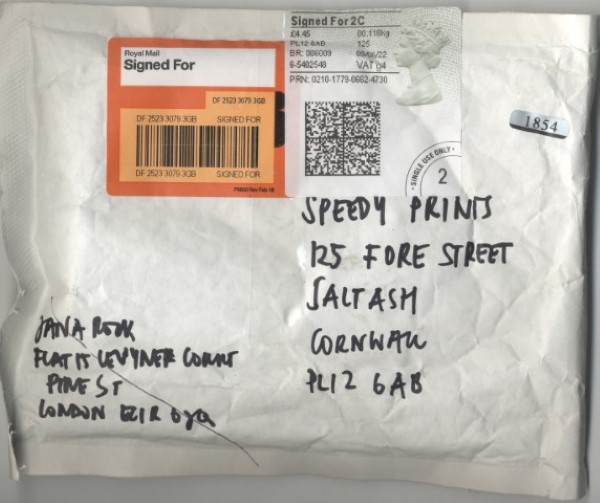 Royal Mail
Signed For
DF 2523 3079 3GB
DF 2523 3079 3GB SIGNED FOR
DF 2523 3079 3GB SIGNED FOR
Signed For 2C
£4.45 00.118kg
PL12 6AB 125
BR: 086009
6-5402548 VAT
PRN: 0210-1779-0662-4730
SINGLE USE ONLY
2
1854
SPEEDY PRINTS
125 FORE STREET
SALTASH
CORNWALL
PL12 6AB
JANA ROOK
FLAT 15 COURT
PINE ST
LONDON